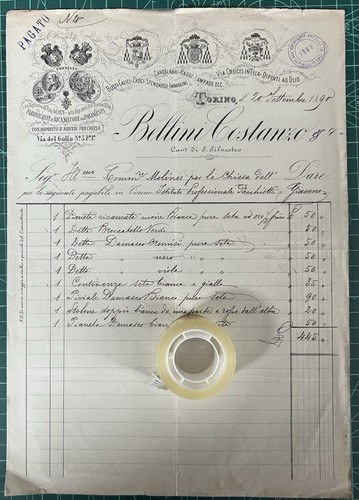 PAGATO
N. 10
PREMIATO
BUSTI-CALICI-CROCI-STENDARDI-IMMAGINI
CANDELABRI-RAGGI LAMPADE ECC.
VIA CRUCIS IN TELA-DIPINTI AD OLIO
1890
FABBRICANTE e RICAMATORE in PARAMENTI
CON DEPOSITO D'ARREDI PER CHIESA
Via del Gallo
TORINO, d. 20 Settembre 1890
Bellini Costanzo & C
Cav. di S. Silvestro
Sig. Ill.mo Comm. Molines per la Chiesa dell' Dare
per le seguenti pagabili in Torino Istituto Professionale Pacchiotti Giaveno
1 Pianeta ricamata uncne Bianca pura seta ed oro ½ fino £ 50 "
1 Detta Broccatello Verde 50 "
1 Detta Damasco Cremisi pura Seta 50 "
1 Detta " nero " " 50 "
1 Detta " viola " " 50 "
1 Continenza seta bianca e gialla 25 "
1 Piviale Damasco Bianco pura Seta 90 "
1 Stolone doppio bianco da una parte e rosso dall'altra 20 "
1 Pianeta Damasco 50 "
£ 445 "